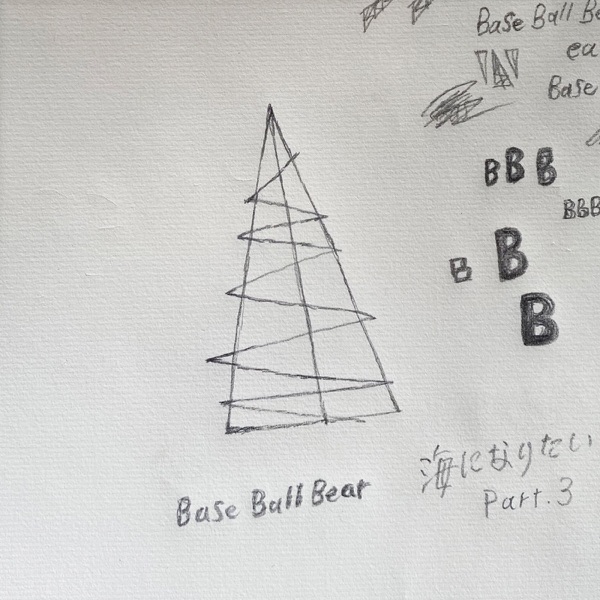 Base Ball Be
ea
Base
B B B
BBB
B B
B
海になりたい
Part.3
Base Ball Bear